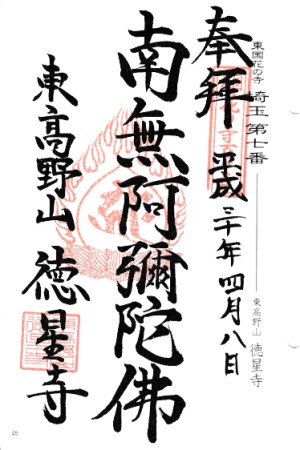 東国花の寺 埼玉 第七番
東高野山 徳星寺
奉拝 平成三十年四月八日
南無阿彌陀佛
東高野山 徳星寺